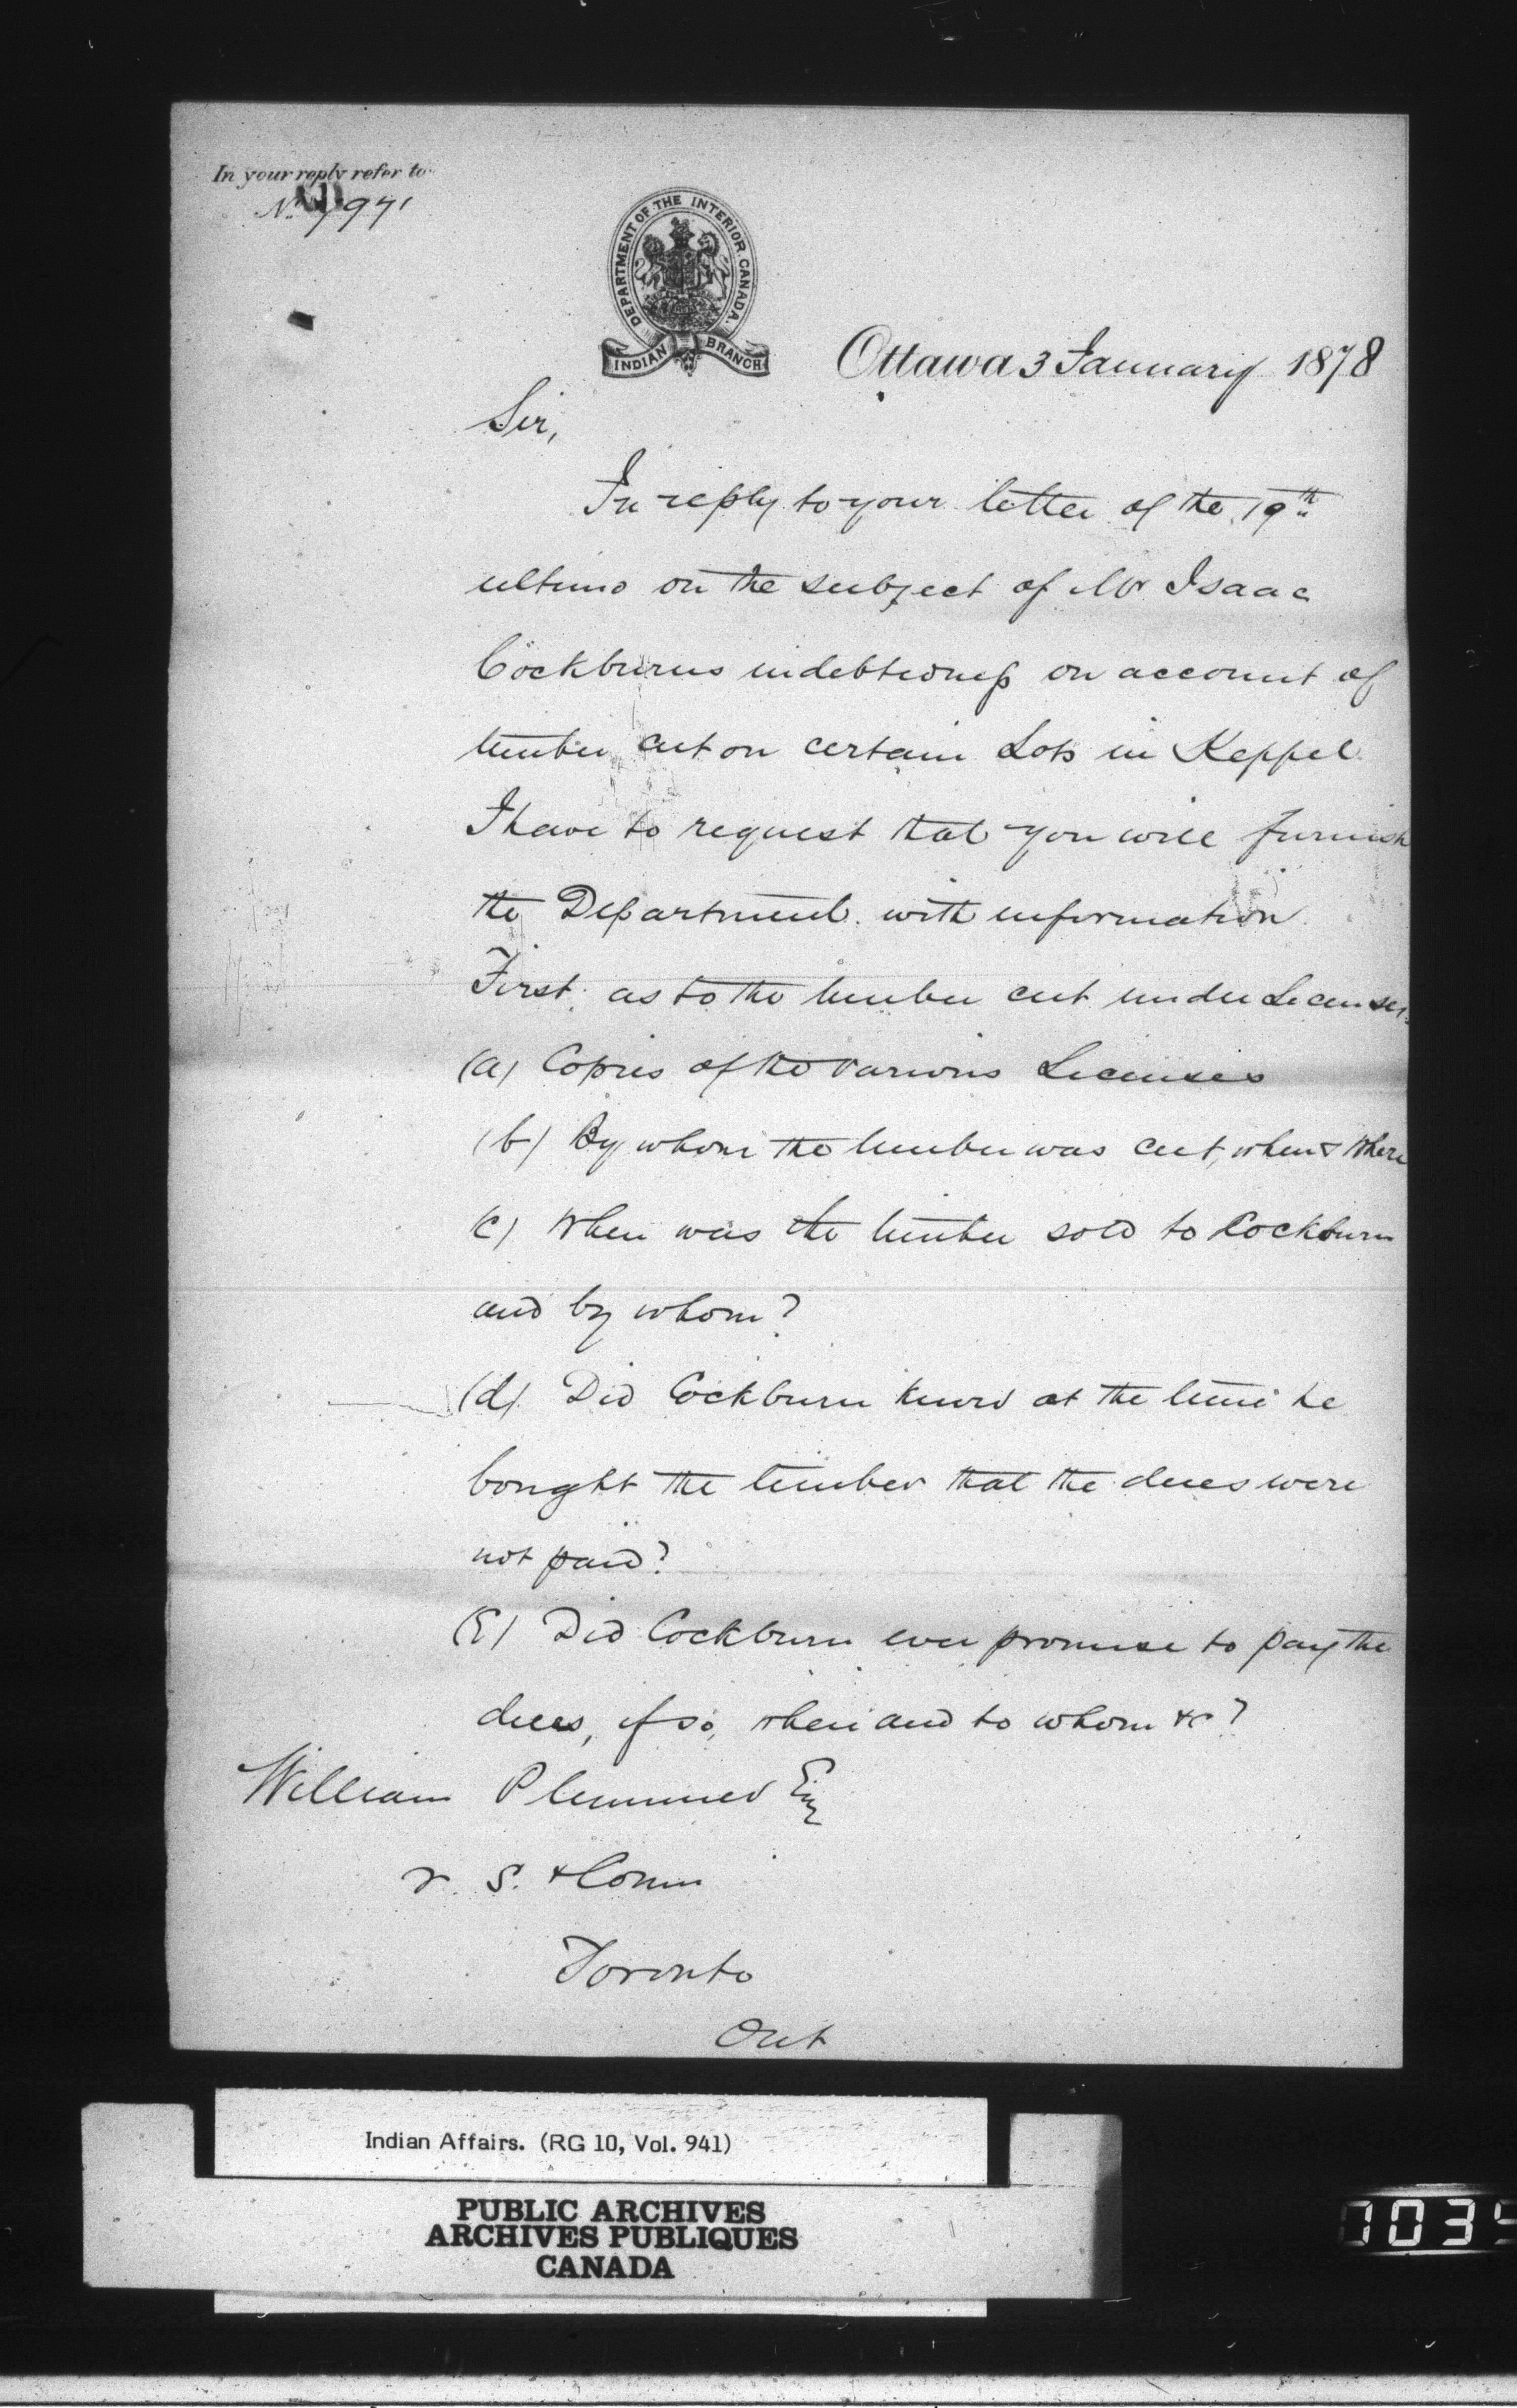 In your reply refer to
No. 7971
DEPARTMENT OF THE INTERIOR CANADA.
INDIAN BRANCH
Ottawa 3 January 1878
Sir,
In reply to your letter of the 19th
ultimo on the subject of Mr Isaac
Cockburns indebtedness on account of
timber cut on certain Lots in Keppel
I have to request that you will furnish
the Department with information
First as to the timber cut under Licenses.
(a) Copies of the various Licenses
(b) By whom the timber was cut, when & where
(c) When was the timber sold to Cockburn
and by whom?
(d) Did Cockburn know at the time he
bought the timber that the dues were
not paid?
(E) Did Cockburn ever promise to pay the
dues, if so, when and to whom &c?
William Plummer Esq
V. S. & Comr
Toronto
Ont
Indian Affairs. (RG 10, Vol. 941)
PUBLIC ARCHIVES
ARCHIVES PUBLIQUES
CANADA